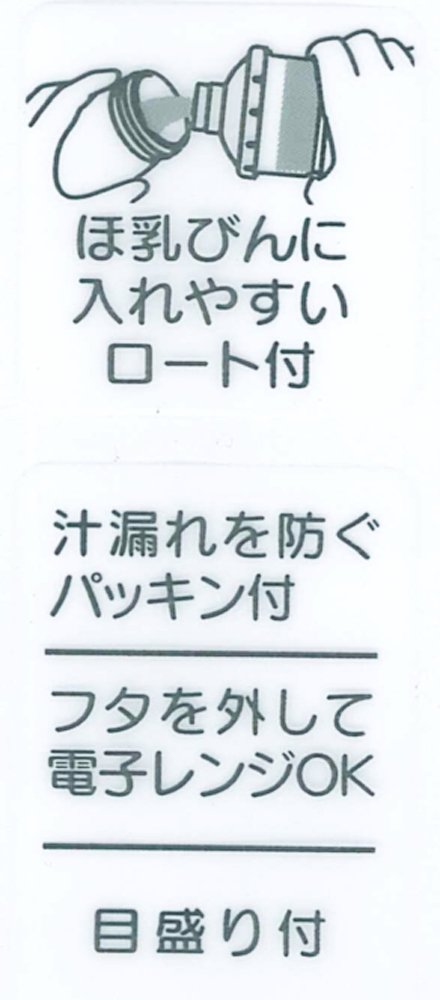 ほ乳びんに
入れやすい
ロート付
汁漏れを防ぐ
パッキン付
フタを外して
電子レンジOK
目盛り付